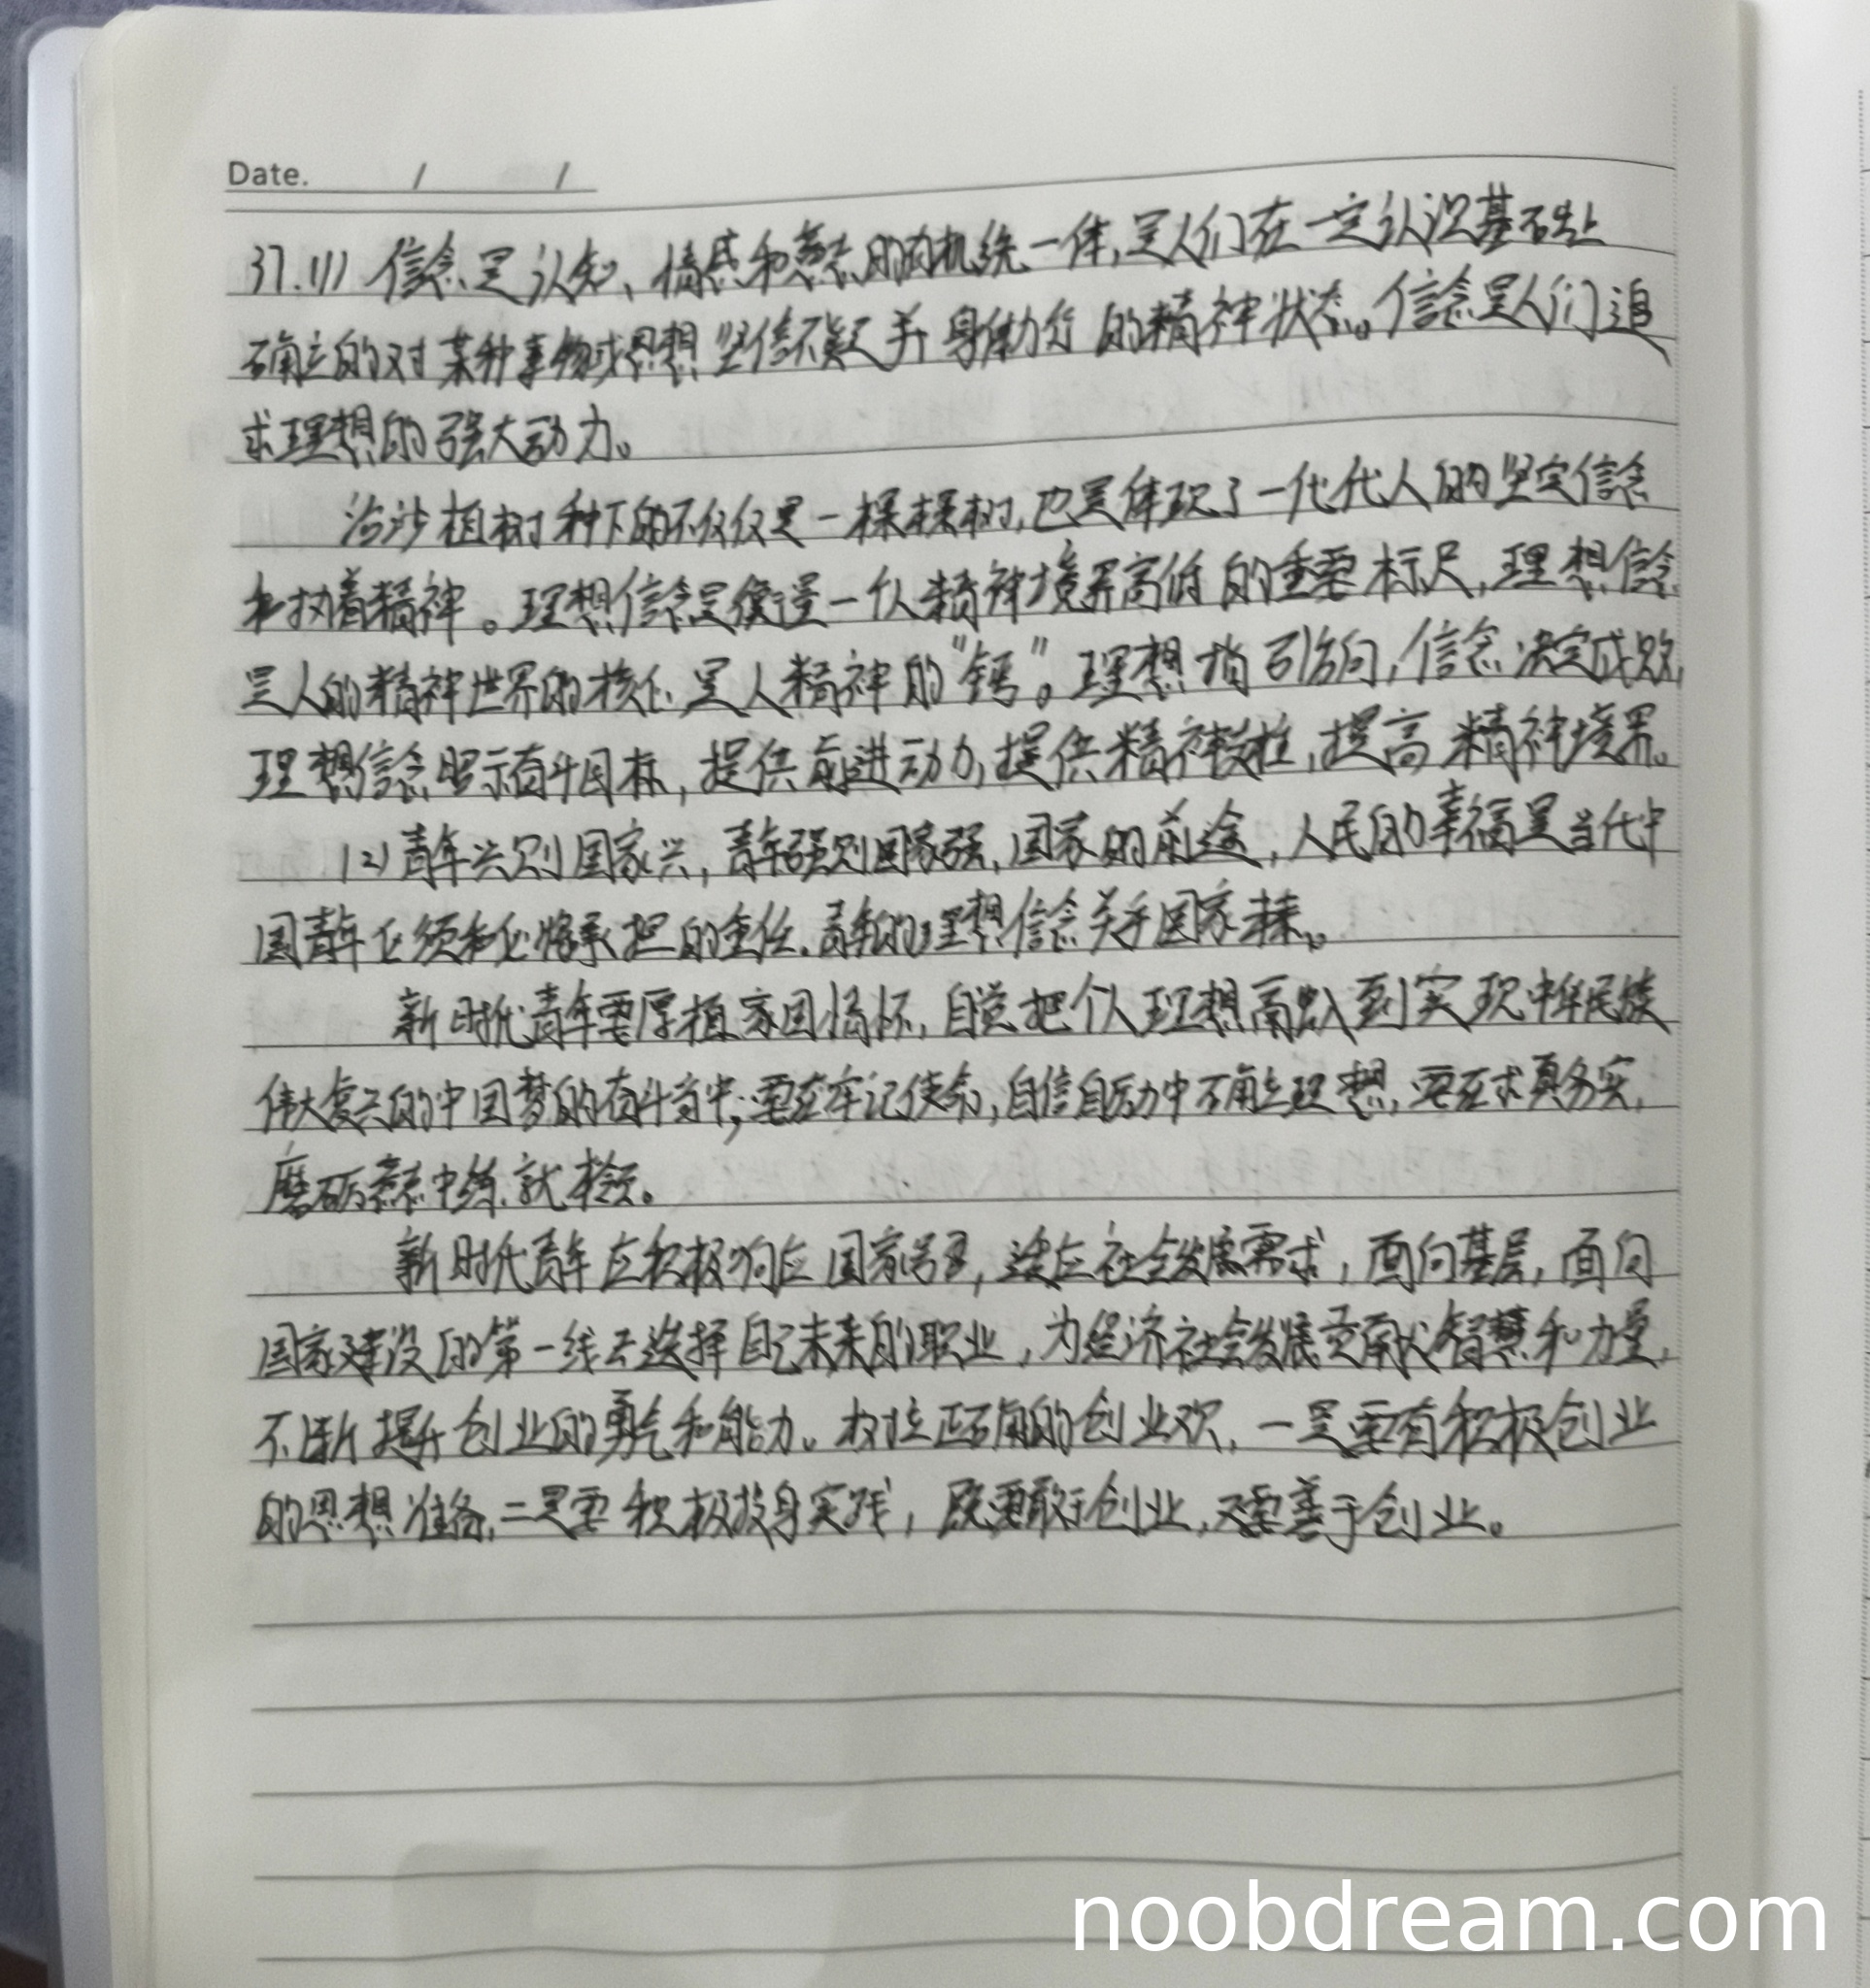 Date. / /
37.(1) 信念是认知、情感和意志的有机统一体,是人们在一定认识基础上
确立的对某种事物或思想坚信不疑并身体力行的精神状态。信念是人们追
求理想的强大动力。
治沙植树种下的不仅仅是一棵棵树,也是体现了一代代人的坚定信念
和执着精神。理想信念是衡量一个人精神境界高低的重要标尺,理想信念
是人的精神世界的核心,是人精神的“钙”。理想指引方向,信念决定成败,
理想信念昭示奋斗目标,提供前进动力,提供精神支柱,提高精神境界。
(2)青年兴则国家兴,青年强则国家强,国家的前途,人民的幸福是当代中
国青年必须和必将承担的重任.青年的理想信念关乎国家未来。
新时代青年要厚植家国情怀,自觉把个人理想融入到实现中华民族
伟大复兴的中国梦的奋斗当中;要在牢记使命,自信自励中确立理想,要在求真务实,
磨砺意志中练就本领。
新时代青年应积极响应国家号召,适应社会发展需求,面向基层,面向
国家建设的第一线去选择自己未来的职业,为经济社会发展贡献智慧和力量,
不断提升创业的勇气和能力。树立正确的创业观,一是要有积极创业
的思想准备,二是要积极投身实践,既要敢于创业,又要善于创业。
noobdream.com